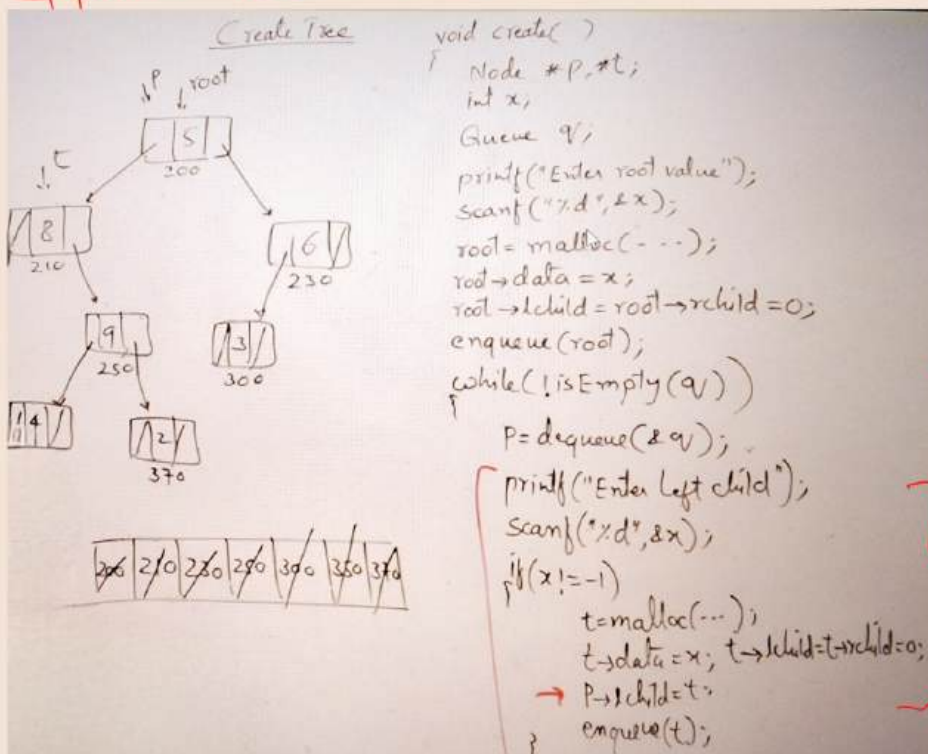 Create Tree
p
root
5
200
t
8
210
6
230
9
250
3
300
4
2
370
200 210 230 250 300 350 370
void create( )
{
Node *p,*t;
int x;
Queue q;
printf("Enter root value");
scanf("%d",&x);
root=malloc(---);
root→data=x;
root→lchild=root→rchild=0;
enqueue(root);
while(!isEmpty(q))
{
P=dequeue(&q);
printf("Enter Left child");
scanf("%d",&x);
if(x!=-1)
{
t=malloc(---);
t→data=x; t→lchild=t→rchild=0;
→ P→lchild=t;
enqueue(t);
}